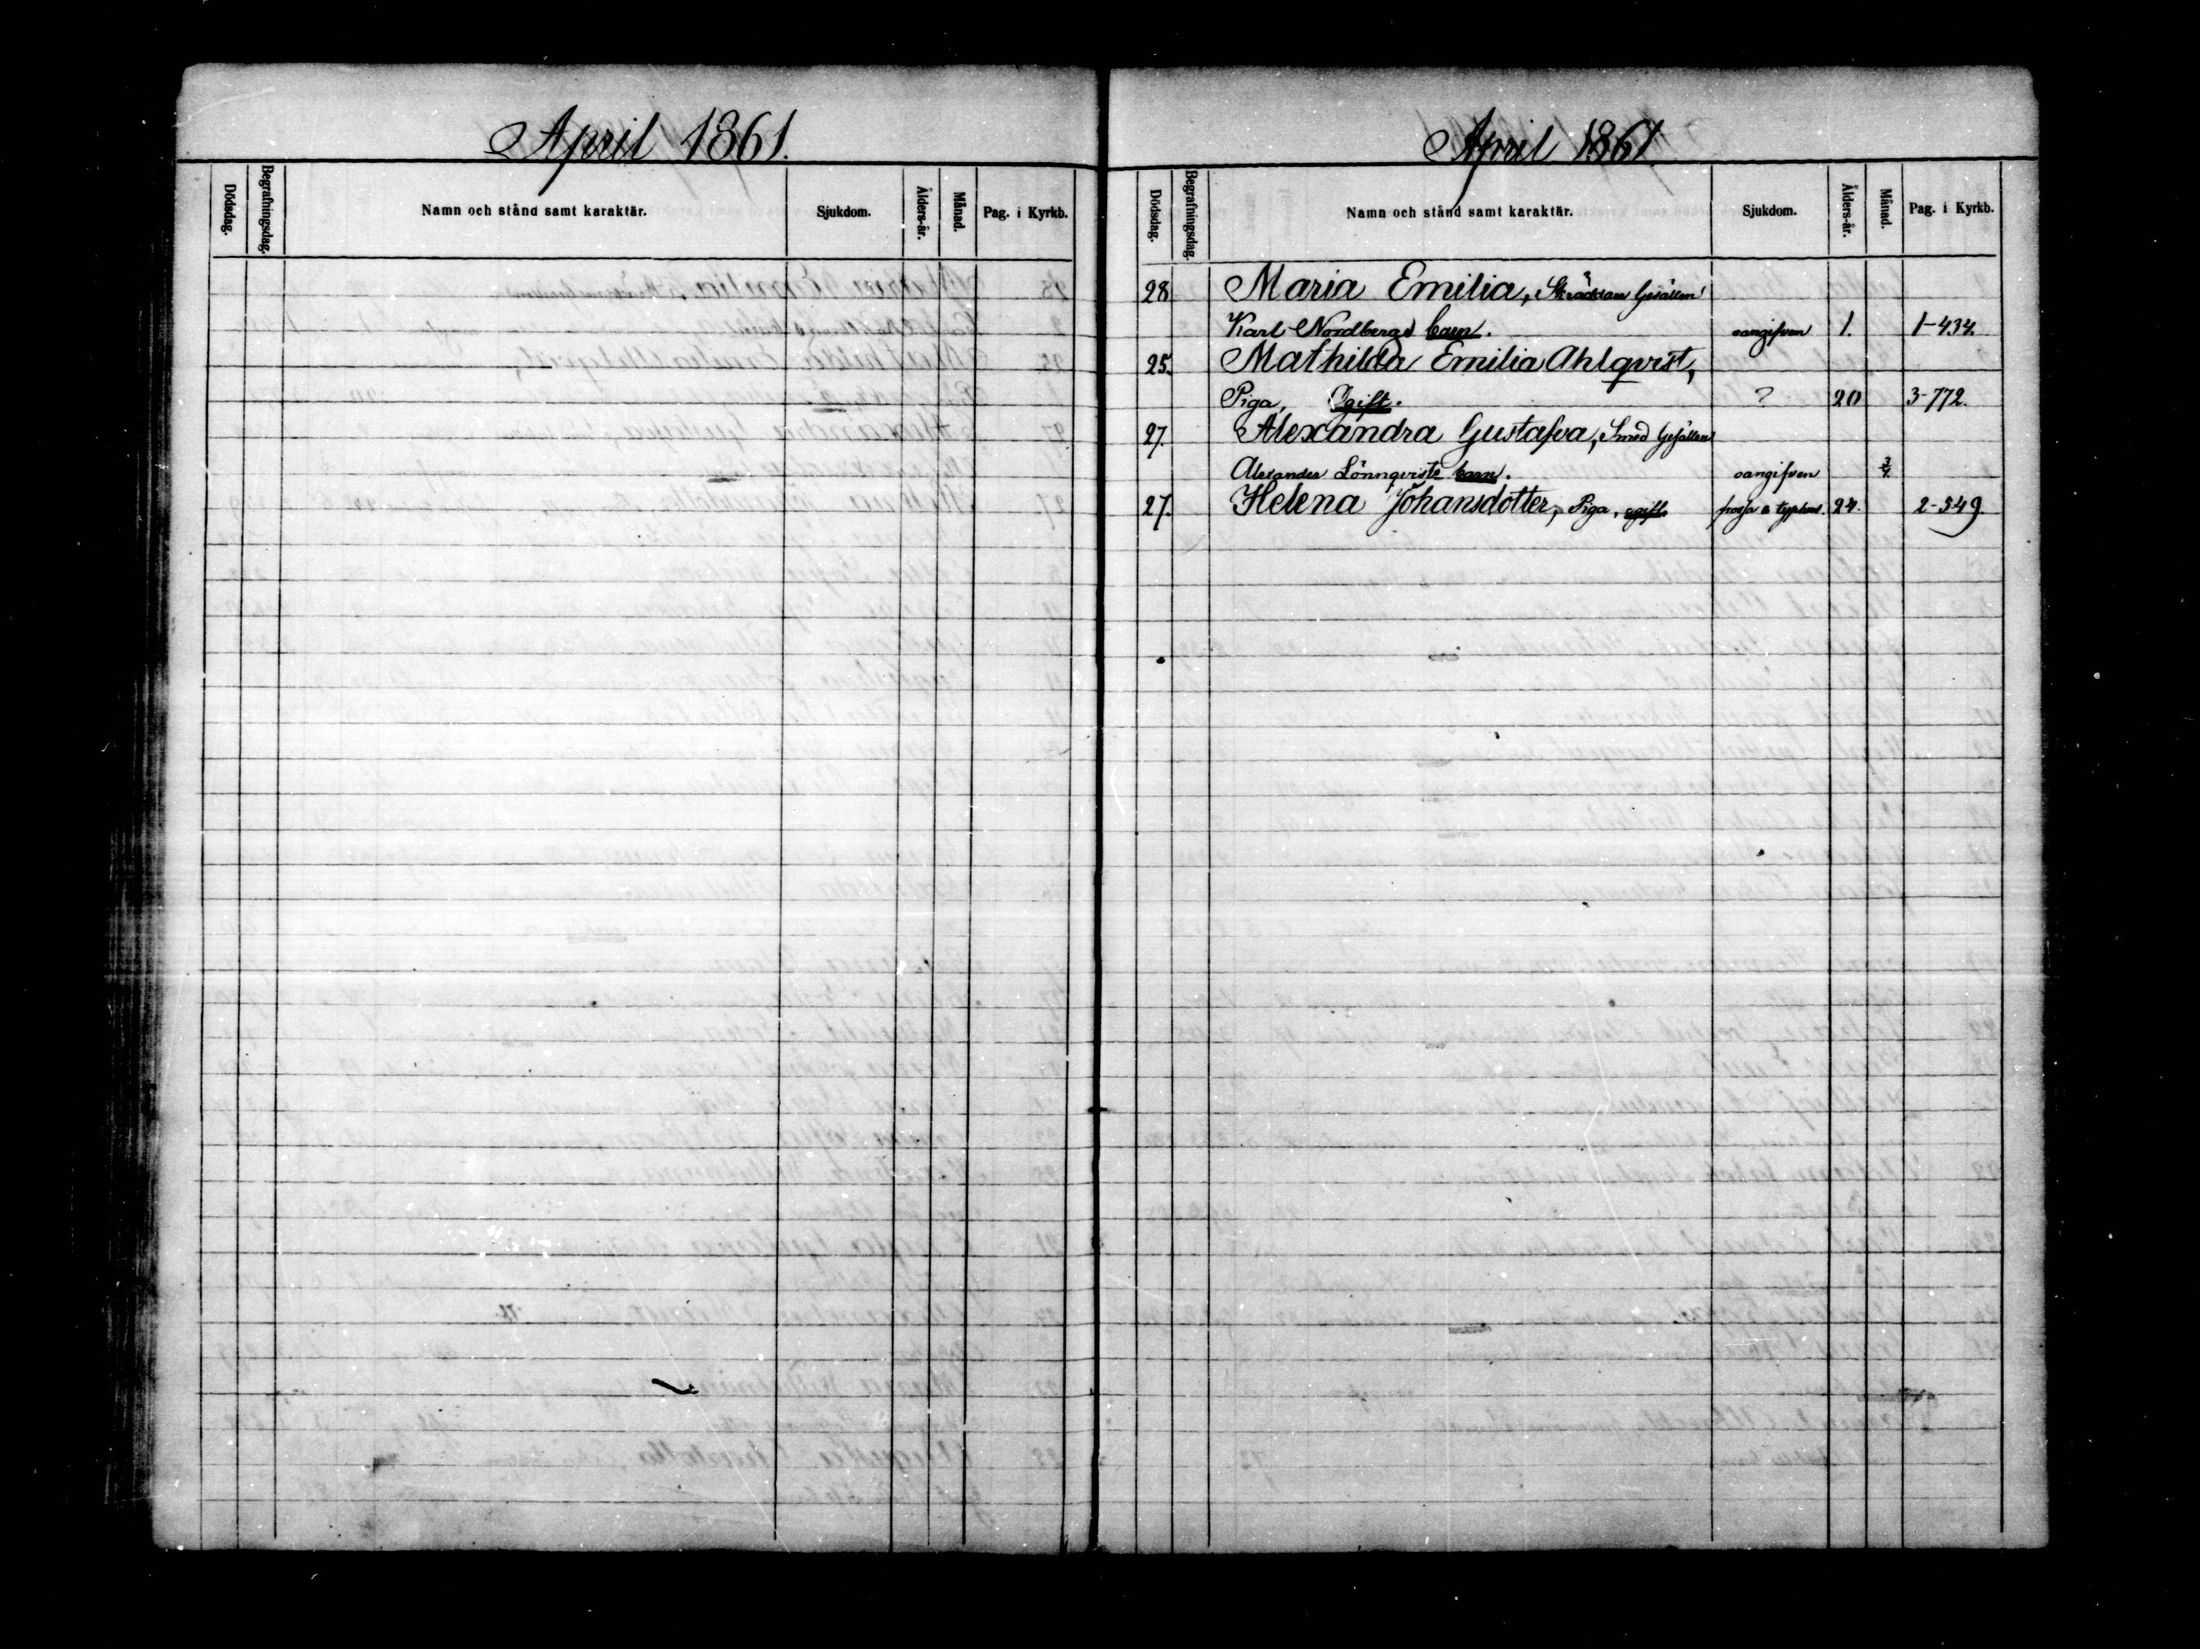 April 1861.
Dödsdag. Begrafningsdag. Namn och stånd samt karaktär. Sjukdom. Ålders-år. Månad. Pag. i Kyrkb.
April 1861.
Dödsdag. Begrafningsdag. Namn och stånd samt karaktär. Sjukdom. Ålders-år. Månad. Pag. i Kyrkb.
28 Maria Emilia, Skräddare Gesällen
Karl Nordbergs barn. oangifven 1. 1-434.
25. Mathilda Emilia Ahlqvist,
Piga, Ogift. ? 20 3-772.
27. Alexandra Gustafva, Smed Gesällen
Alexander Lönnqvists barn. oangifven
27. Helena Johansdotter, Piga, ogift. frossa & typhus. 24. 2-549